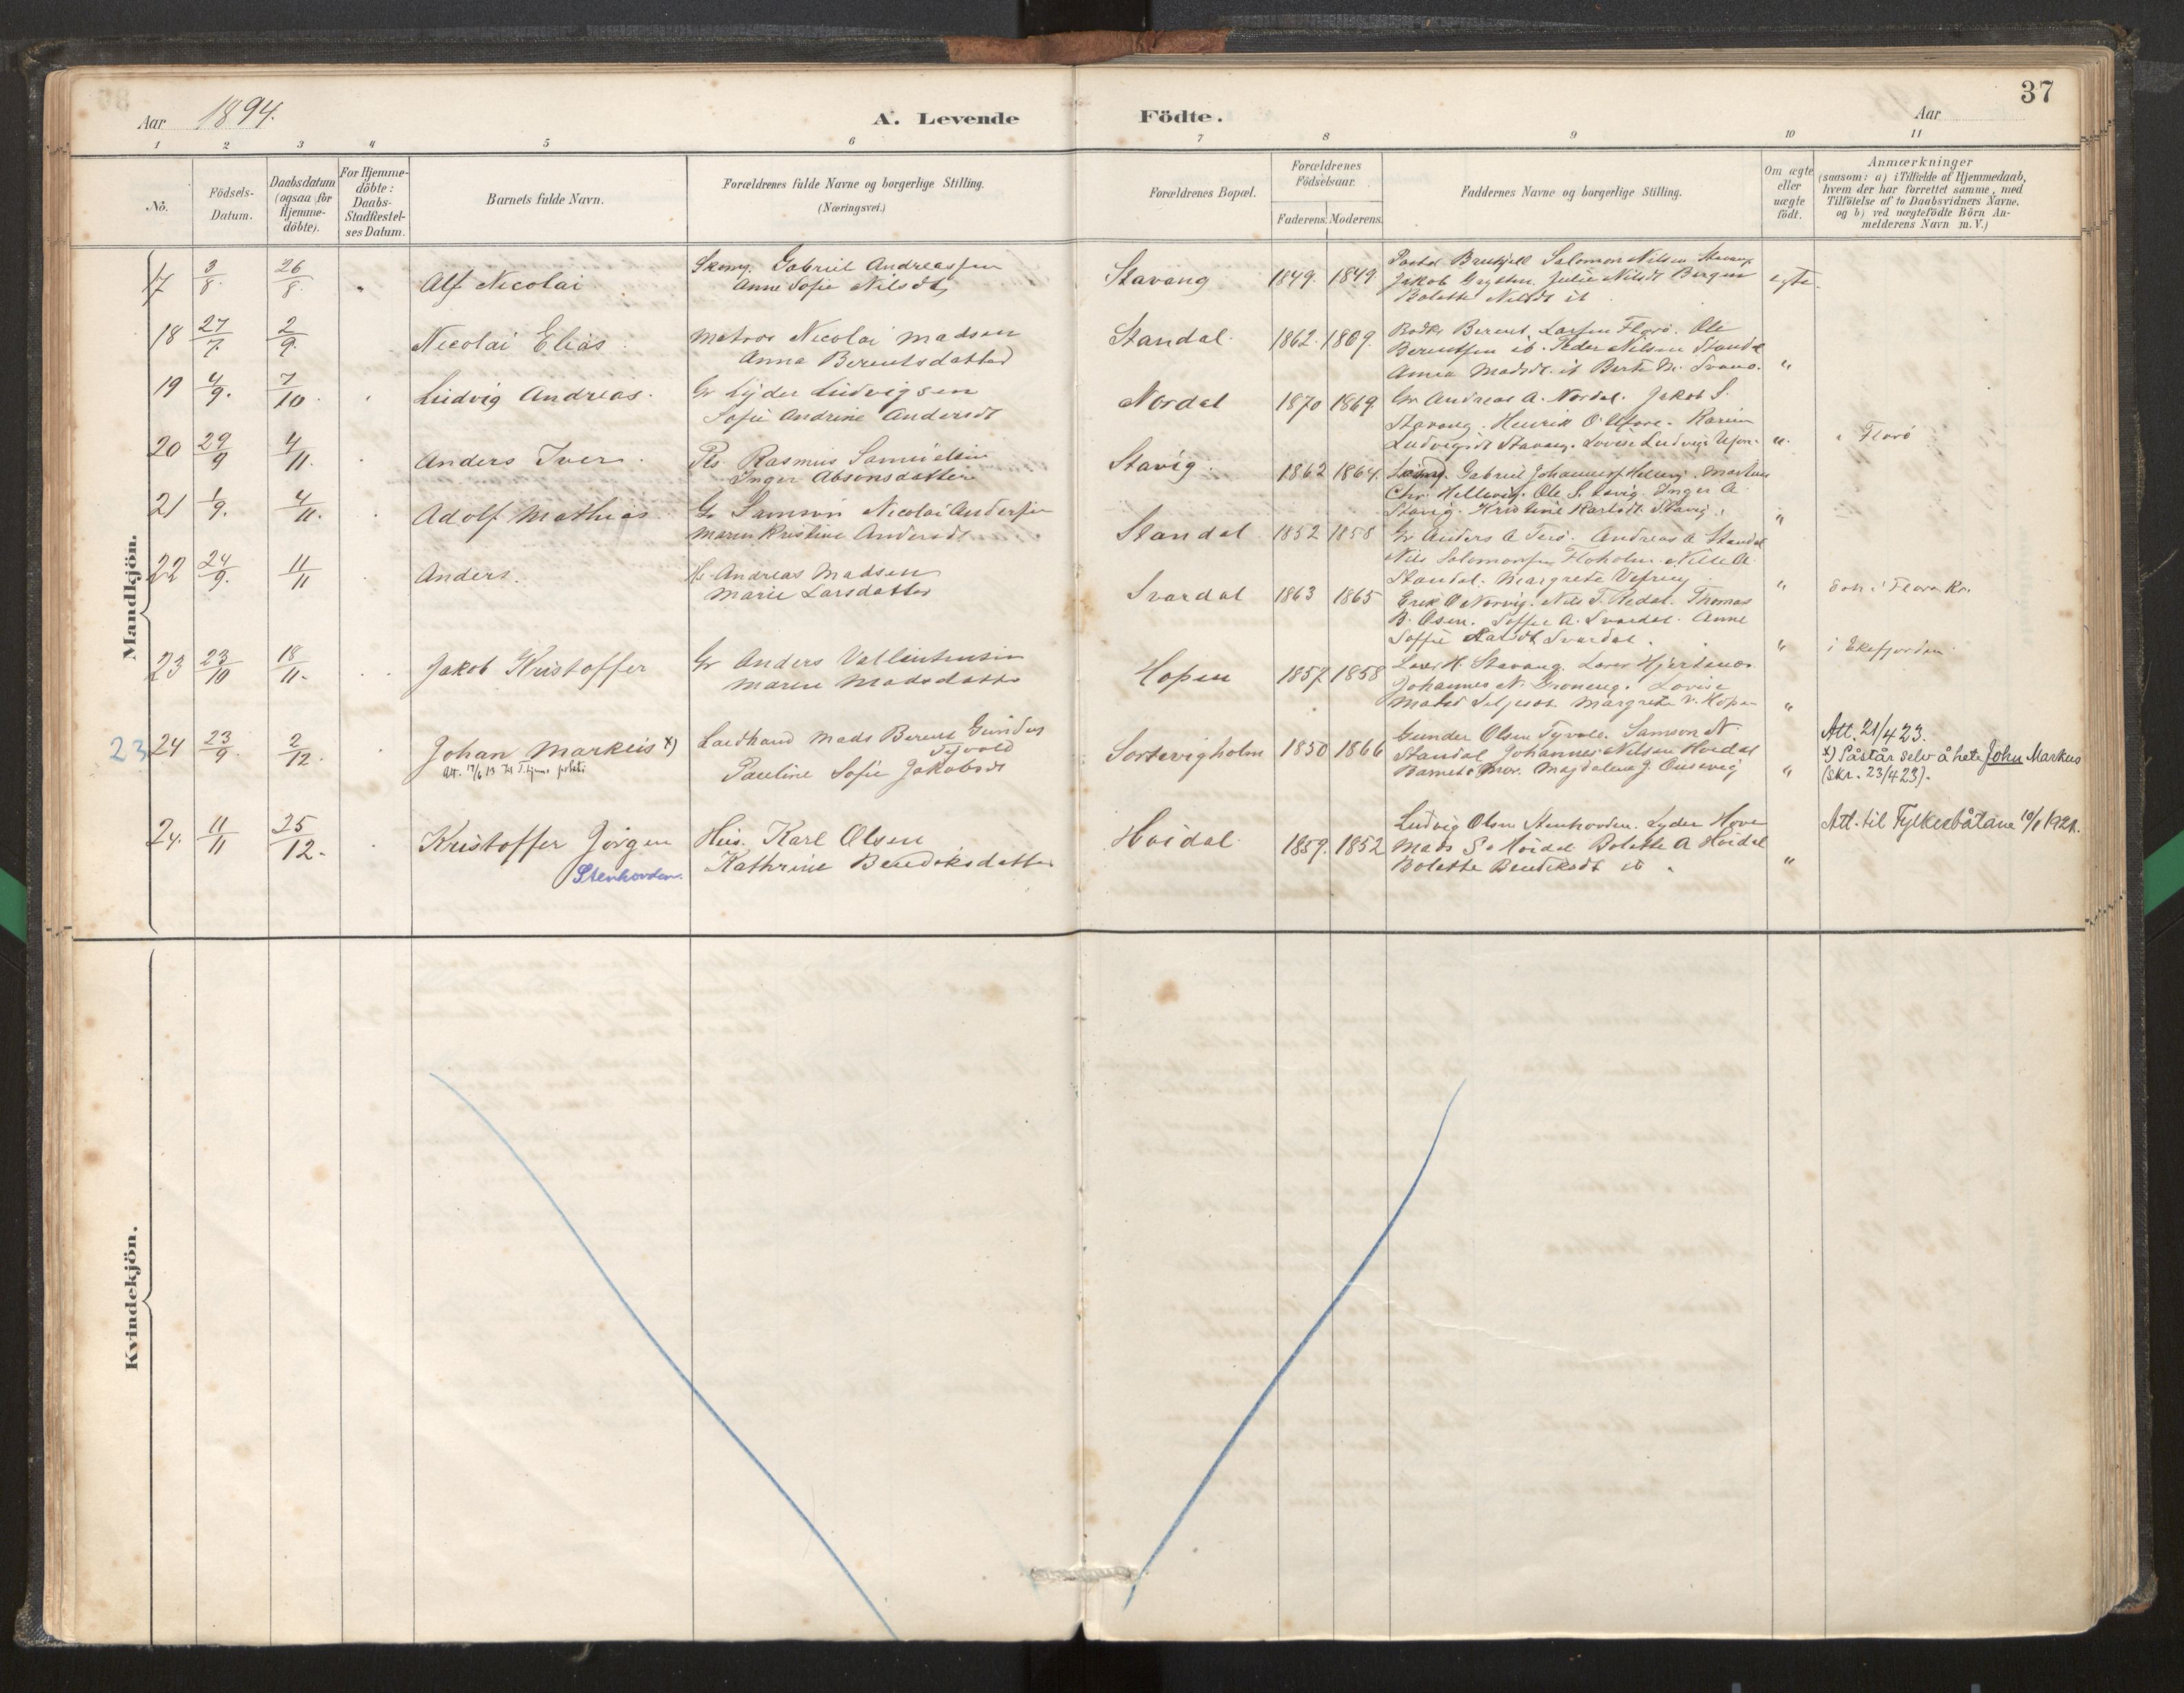 37
Aar 1894.
A. Levende Födte.
Aar
1 2 3 4 5 6 7 8 9 10 11
No.
Födsels-
Datum.
Daabsdatum
(ogsaa for
Hjemme-
döbte).
For Hjemme-
döbte:
Daabs-
Stadfæstel-
ses Datum.
Barnets fulde Navn.
Forældrenes fulde Navne og borgerlige Stilling.
(Næringsvei.)
Forældrenes Bopæl.
Forældrenes
Födselsaar.
Faderens. Moderens.
Faddernes Navne og borgerlige Stilling.
Om ægte
eller
uægte
födt.
Anmærkninger
(saasom: a) i Tilfælde af Hjemmedaab,
hvem der har forrettet samme, med
Tilföielse af to Daabsvidners Navne,
og b) ved uægtefödte Börn An-
melderens Navn m. V.)
Mandkjön.
17 3/8. 26/8. " Alf Nicolai
Gabriel Andreassen
Anne Sofie Nilsdt
Stavang 1849. 1849
Salomon Nilsen Stavang
Jakob Julie Nilsdt Bergen
Bolette Nilsdt ib
egte.
18 27/7. 2/9. Nicolai Elias
Matros Nicolai Madsen
Anna Berentsdatter
Standal. 1862. 1869.
Berent Larsen Florö. Ole
Berentsen ib. Peder Nilsen Standal
Anna Madsdt. ib Berte M. Svanö. "
19 4/9. 7/10. Ludvig Andreas.
Gr Lyder Ludvigsen
Sofie Andrine Andersdt
Nordal 1870 1869.
Gr Andreas A. Nordal. Jakob S.
Stavang. Henrik O. Karen
Ludvigsdt Stavang. Lovise Ludvigs "
i Florö
20 29/9 4/11. Anders Iver.
Pls Rasmus Samuelsen
Inger Absonsdatter
Stavig. 1862 1864.
Gabriel Johannes Hellevig. Martin
Chr. Hellevig. Ole S. Stavig. Inger A.
Stavig. Kristine Karlsdt. Stavig. "
21 1/9. 4/11. Adolf Mathias
Gr Samson Nicolai Andersen
Maren Kristine Andersdt
Standal 1852 1858
Gr Anders A Terö. Andreas A Standal
Nils Salomonsen Floholm. Nille A.
Standal. Margrete Vefring "
22 24/9. 11/11 Anders.
Andreas Madsen
Marie Larsdatter
Svardal 1863 1865
Erik O Norvig. Nils T. Redal. Thomas
B. Osen. Soffie A. Svardal. Anne
Soffie Svardal. "
Döbt i Florö Kr.
23 23/10 18/11. Jakob Kristoffer
Gr Anders Vallentinsen
Maren Madsdatter
Hopen 1857 1858
Lars H. Stavang. Lars Hjertenæs
Johannes N. Grönneng. Lovise
Margrete V. Hopen "
i Eikefjorden
23 24 23/9. 2/12. Johan Markus x)
Mads Berent Gunders
Tyvold
Pauline Sofie Jakobsdt
Sortevigholm 1850 1866
Gunder Olsen Tyvold. Samson N.
Standal Johannes Nilsen Hoidal
Barnets Mor. Magdalena J. "
Att. 21/4 23.
x) Påstår selv å hete John Markus
(skr. 23/4 23).
24. 11/11 25/12. Kristoffer Jörgen
Stenhovden.
Hus. Karl Olsen
Kathrine Bendiksdatter
Hoidal 1859. 1852
Ludvig Olsen Stenhovden. Lyder Hove
Mads S. Hoidal Bolette A Hoidal
Bolette Bendiksdt ib. "
Att. til Fylkesbåtane
Kvindekjön.